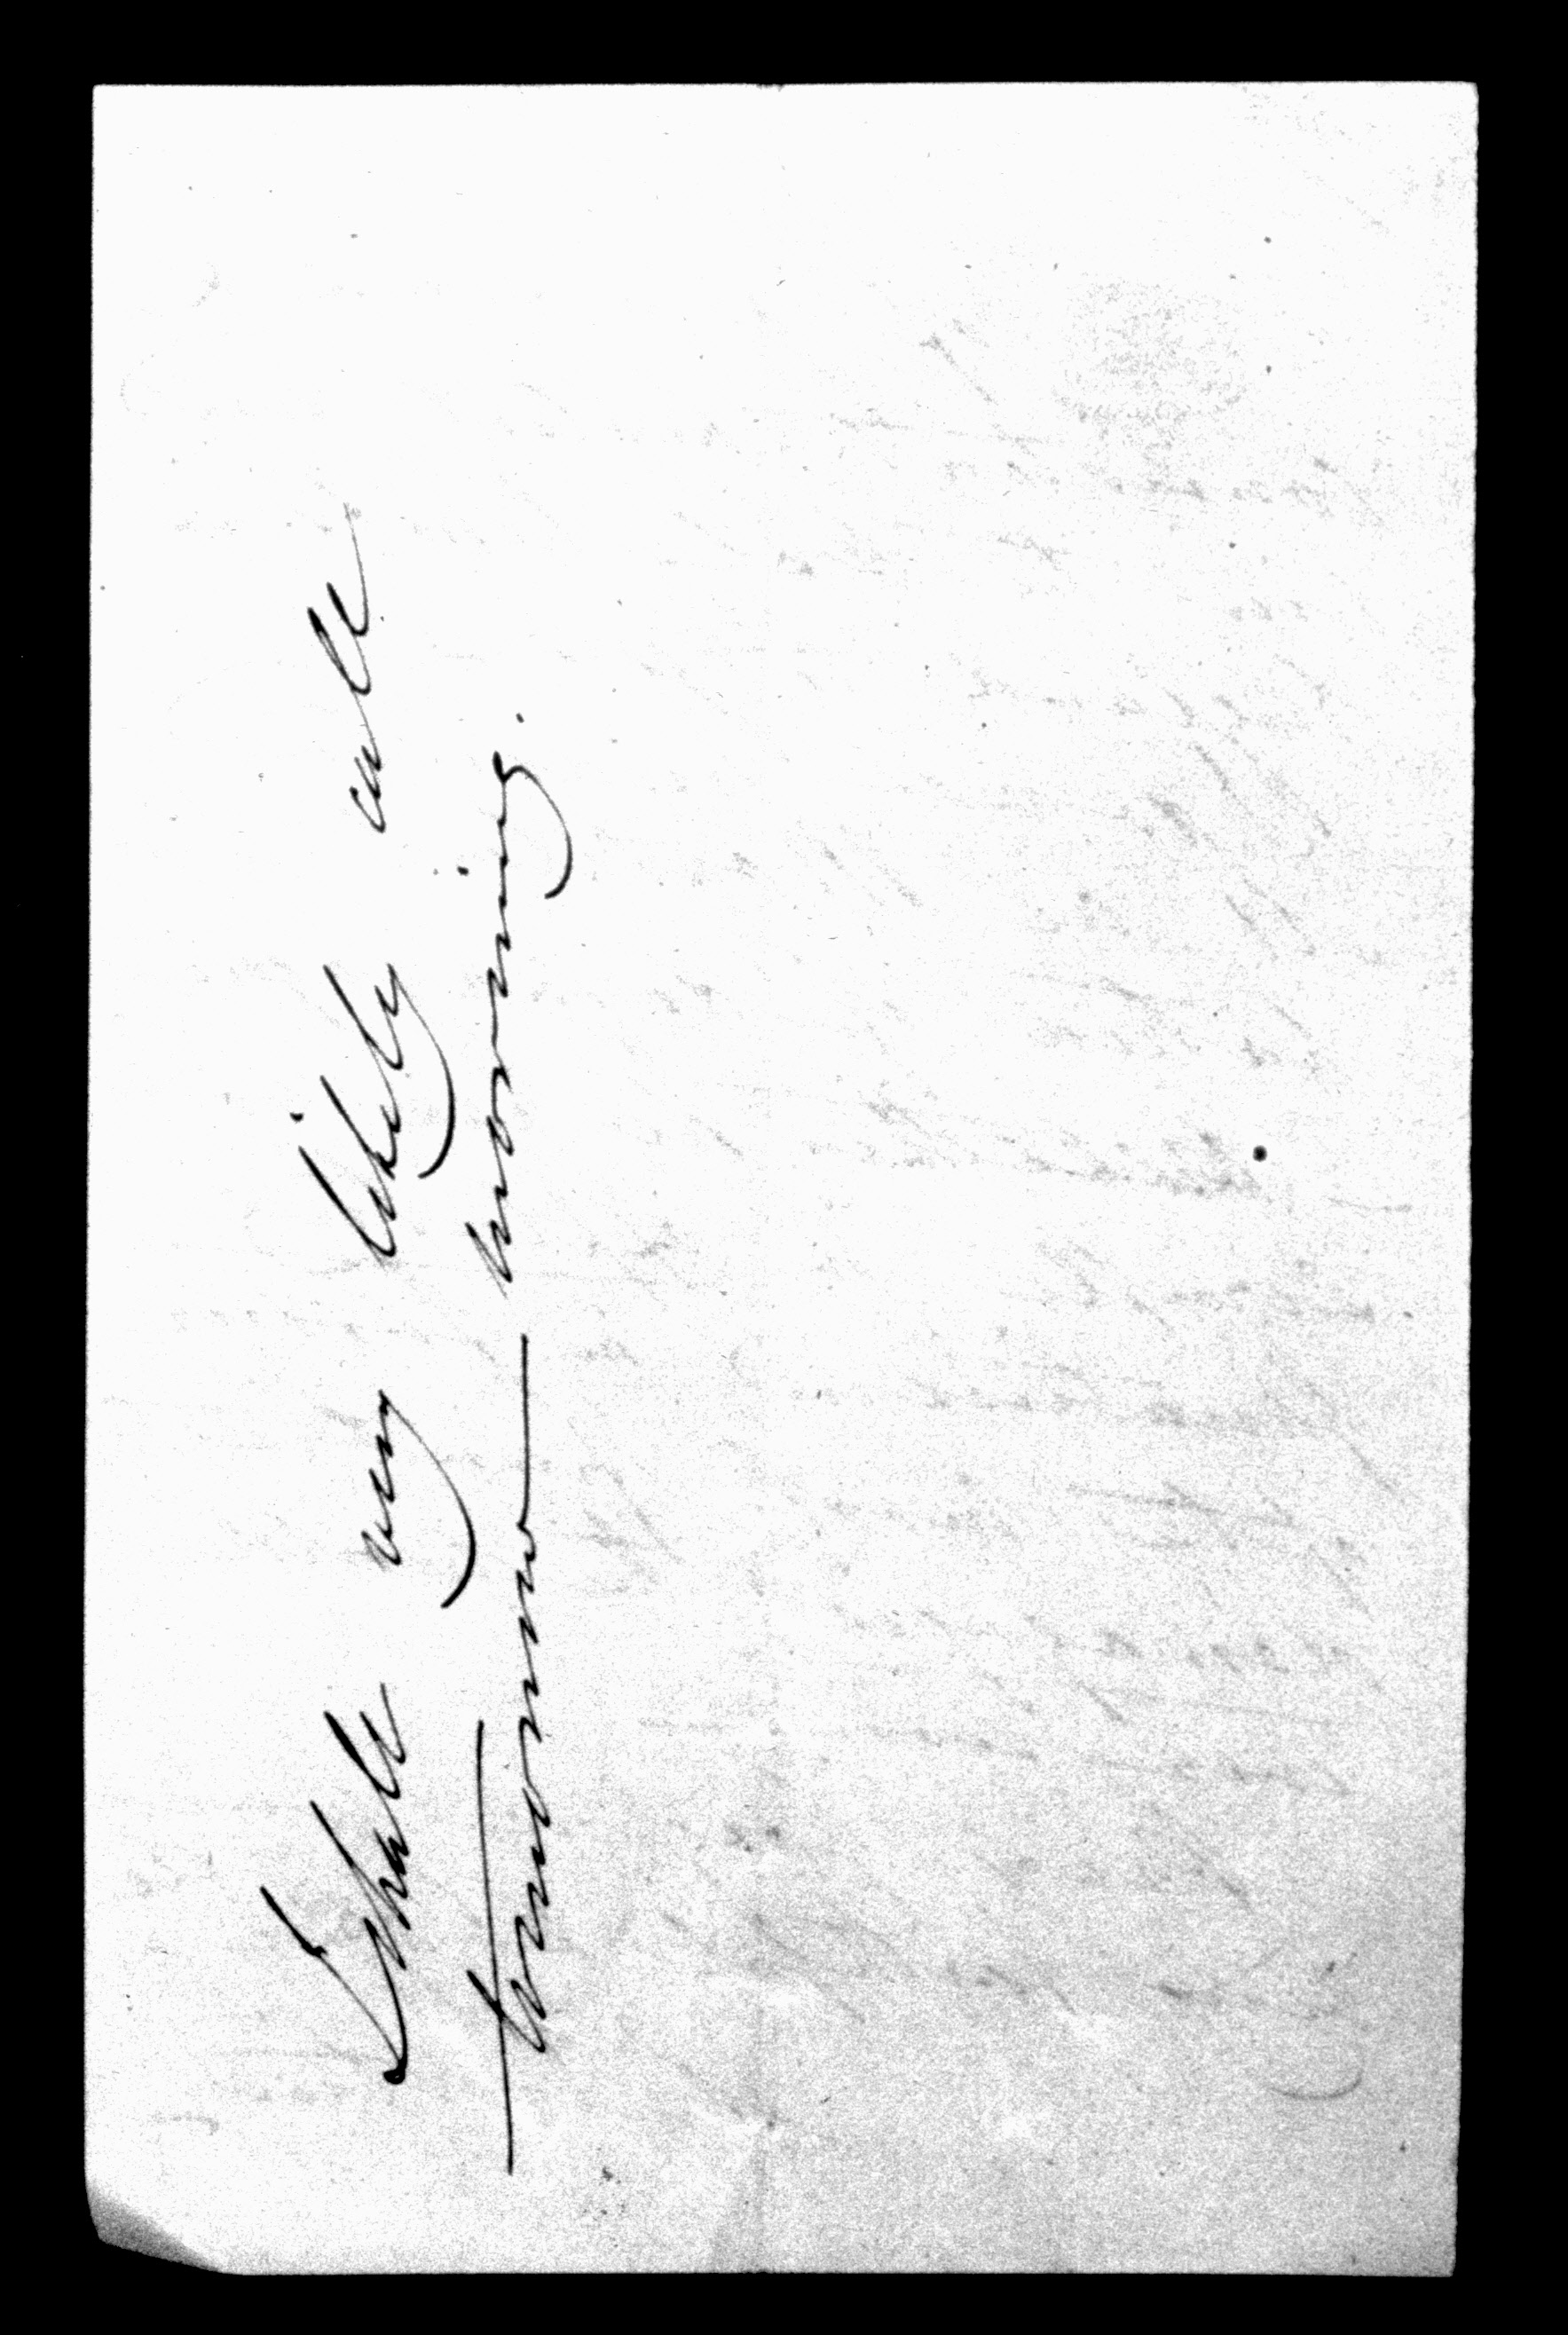 I shall very likely call
tomorrow morning.